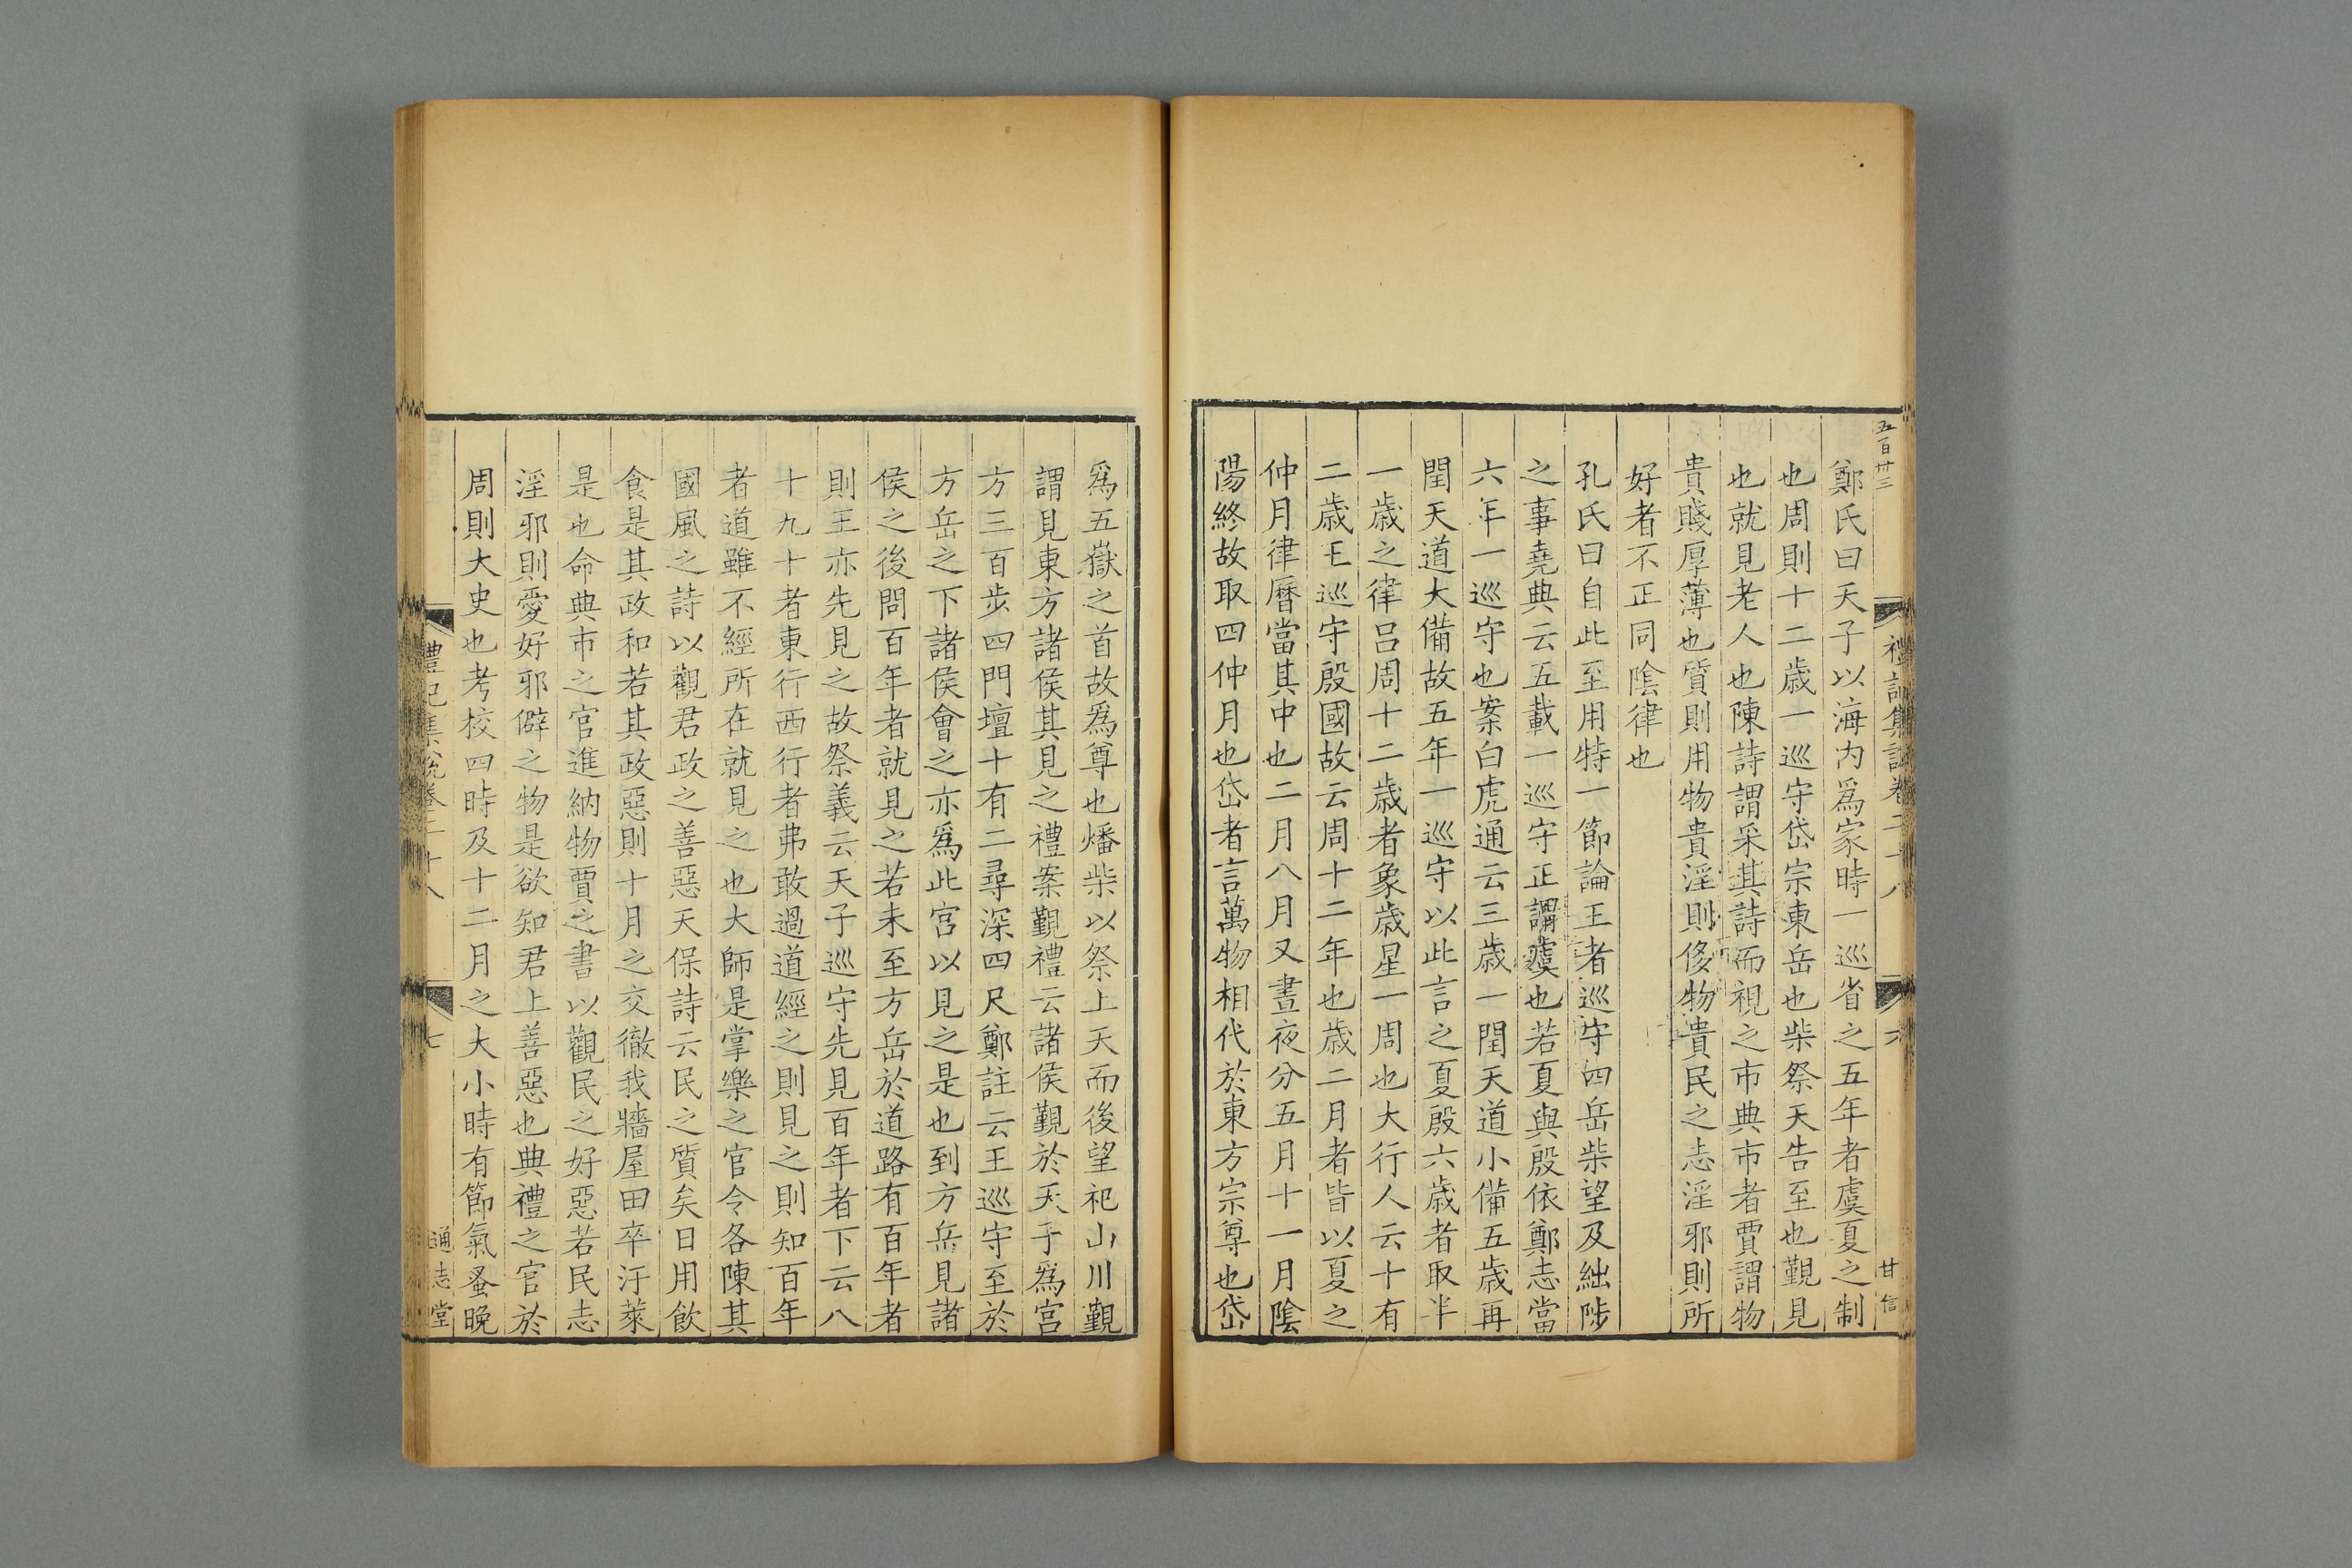 五百卅三
禮記集說卷二十八
六
甘信
鄭氏曰天子以海内爲家時一巡省之五年者虞夏之制
也周則十二歲一巡守岱宗東岳也柴祭天告至也覲見
也就見老人也陳詩謂采其詩而視之市典市者賈謂物
貴賤厚薄也質則用物貴淫則侈物貴民之志淫邪則所
好者不正同陰律也
孔氏曰自此至用特一節論王者巡守四岳柴望及絀陟
之事堯典云五載一巡守正謂虞也若夏與殷依鄭志當
六年一巡守也案白虎通云三歲一閏天道小備五歲再
閏天道大備故五年一巡守以此言之夏殷六歲者取半
一歲之律呂周十二歲者象歲星一周也大行人云十有
二歲王巡守殷國故云周十二年也歲二月者皆以夏之
仲月律曆當其中也二月八月又晝夜分五月十一月陰
陽終故取四仲月也岱者言萬物相代於東方宗尊也岱
爲五嶽之首故爲尊也燔柴以祭上天而後望祀山川覲
謂見東方諸侯其見之禮案覲禮云諸侯覲於天子爲宮
方三百步四門壇十有二尋深四尺鄭註云王巡守至於
方岳之下諸侯會之亦爲此宮以見之是也到方岳見諸
侯之後問百年者就見之若未至方岳於道路有百年者
則王亦先見之故祭義云天子巡守先見百年者下云八
十九十者東行西行者弗敢過道經之則見之則知百年
者道雖不經所在就見之也大師是掌樂之官令各陳其
國風之詩以觀君政之善惡天保詩云民之質矣日用飲
食是其政和若其政惡則十月之交徹我牆屋田卒汙萊
是也命典市之官進納物賈之書以觀民之好惡若民志
淫邪則愛好邪僻之物是欲知君上善惡也典禮之官於
周則大史也考校四時及十二月之大小時有節氣蚤晚
禮記集說卷二十八
七
通志堂